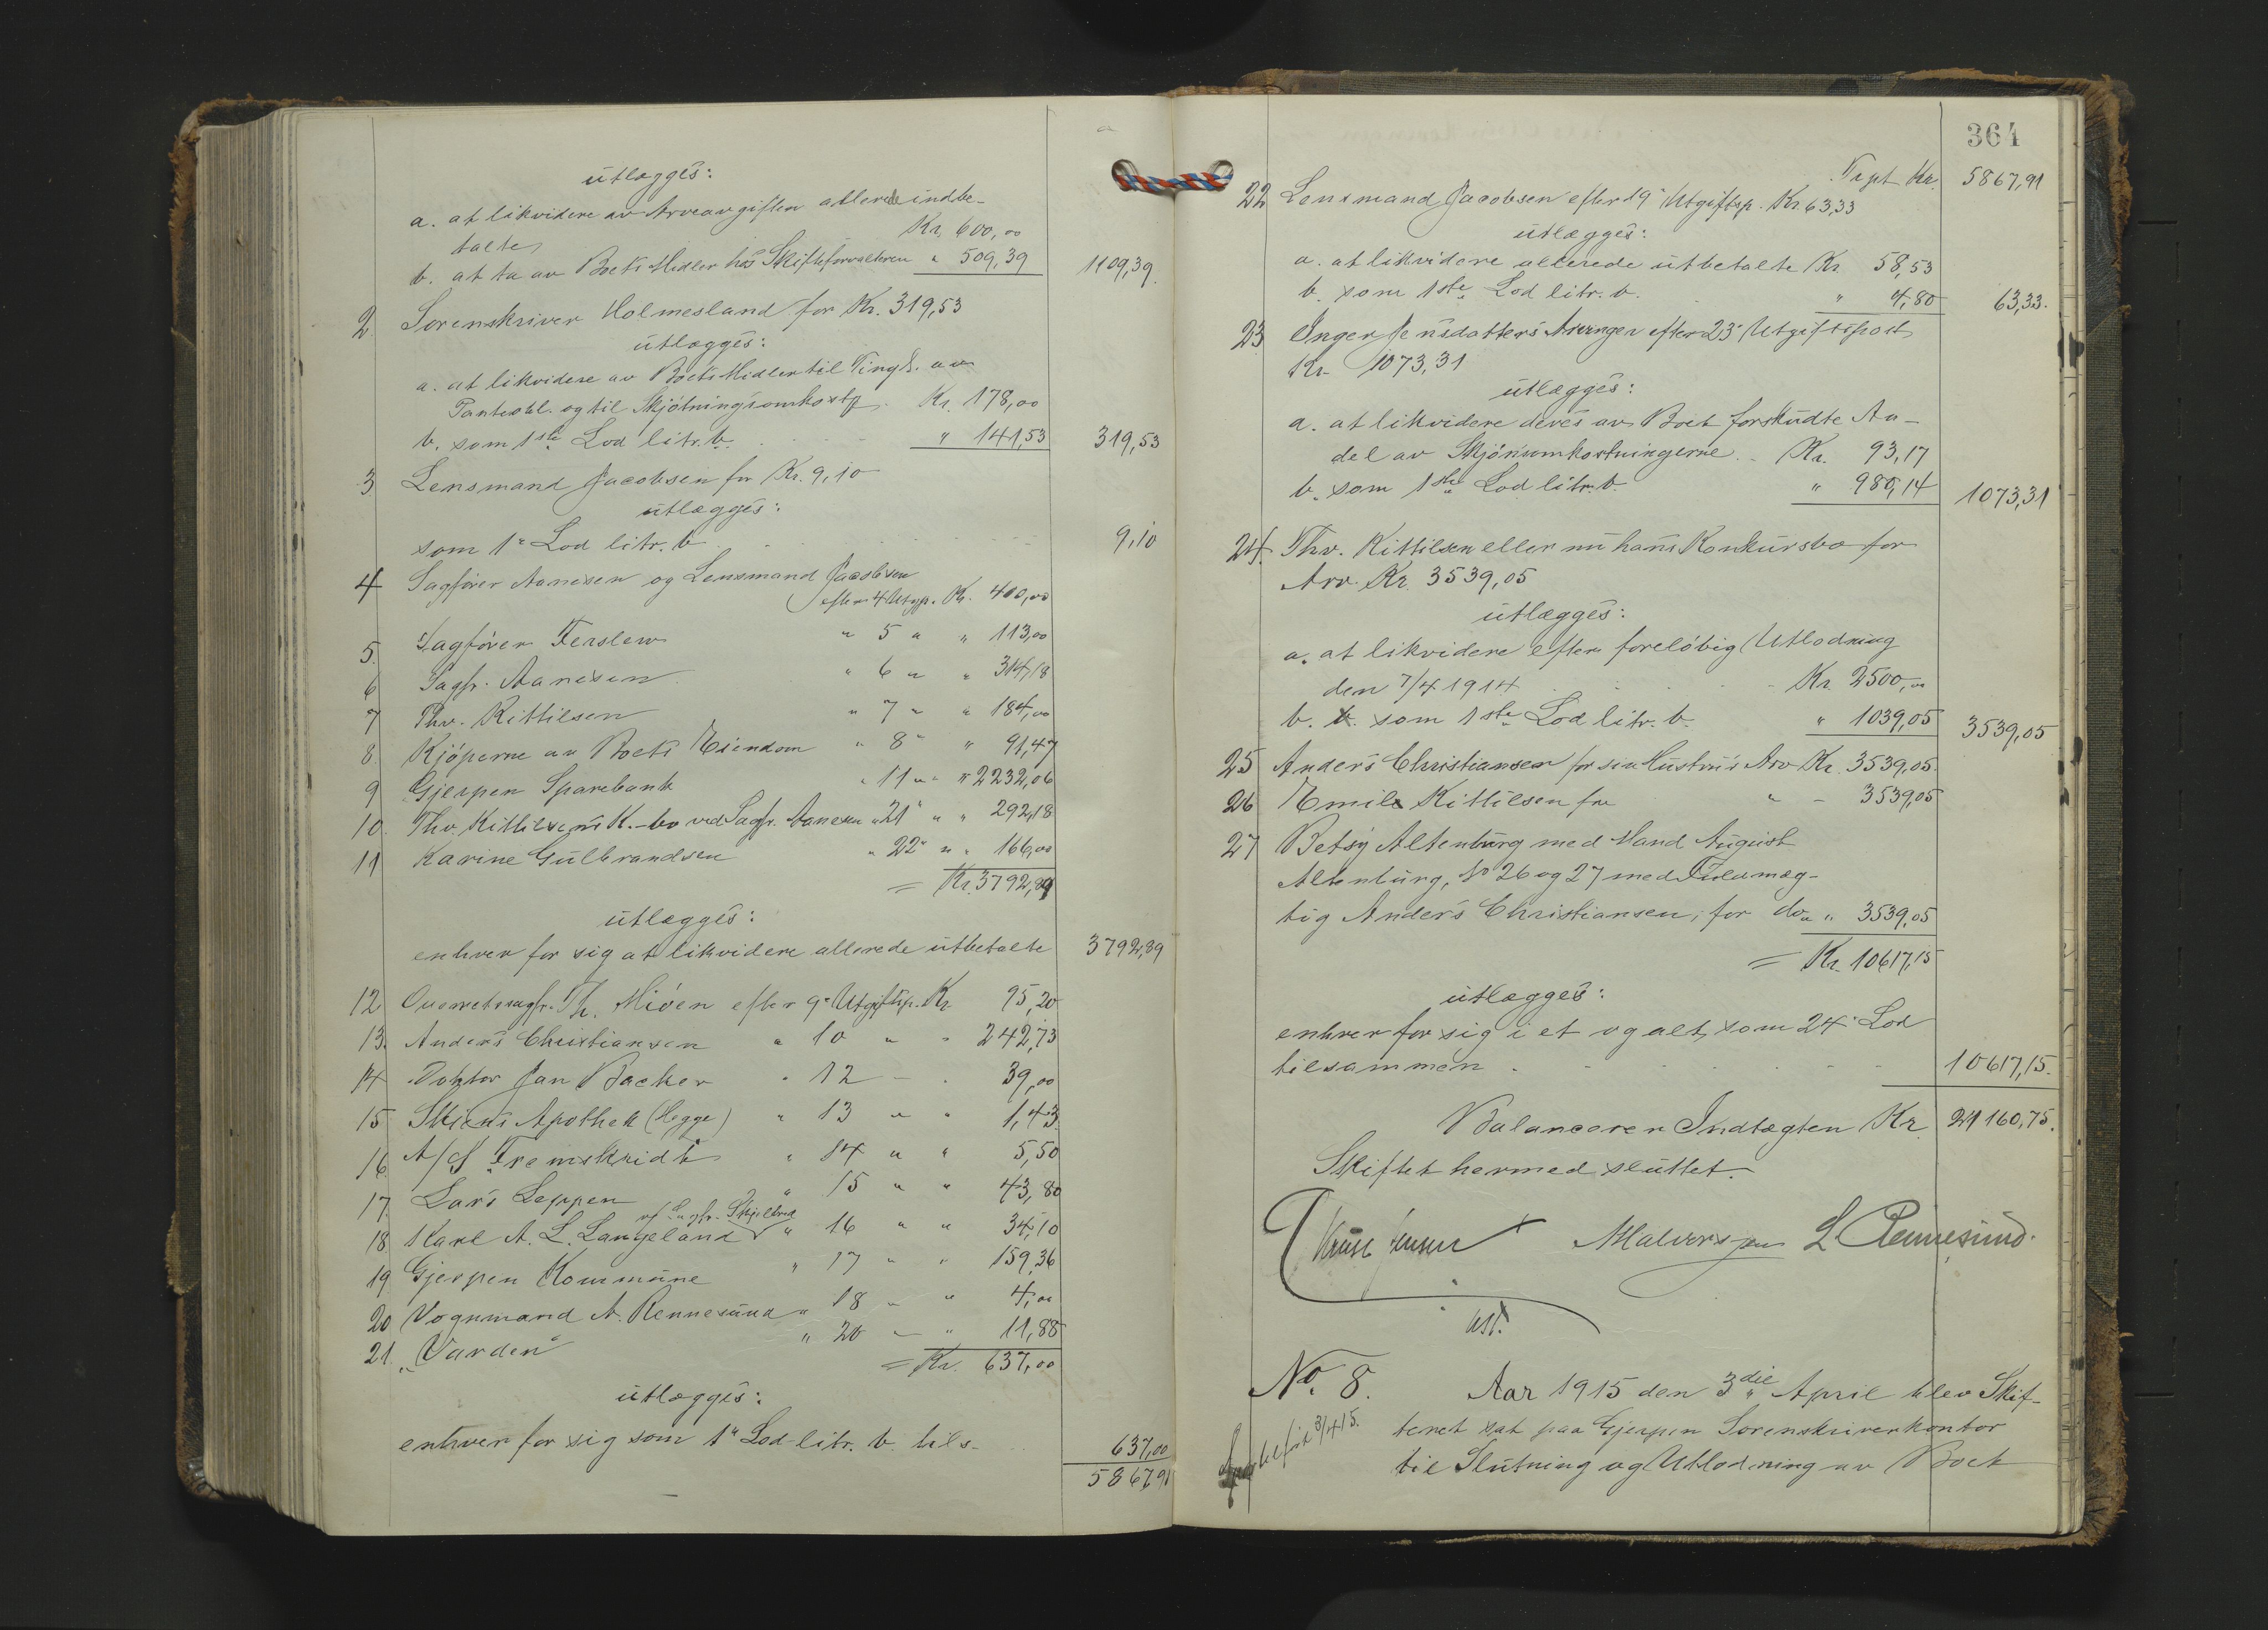 utlægges:
a. at likvidere av Arveavgiften allerede indbe-
talte Kr. 600,00
b. at ta av Boets Midler hos Skifteforvalteren " 509,39 1109,39
2 Sorenskriver Holmesland for Kr. 319,53
utlægges:
a. at likvidere av Boets Midler til Tingl. av
Panteobl. og til Skjötningsomkostn. Kr. 178,00
b. som 1ste Lod litr. b. " 141,53 319,53
3 Lensmand Jacobsen for Kr. 9,10
utlægges:
som 1e Lod litr. b 9,10
4 Sagförer Aanesen og Lensmand Jacobsen
efter 4 Utgp. Kr. 400,00
5. Sagförer Ferslew " 5 " " 113,00
6 Sagfr. Aanesen " 6 " " 314,18
7 Thv. Kittilsen " 7 " " 184,00
8. Kjöperne av Boets Eiendom " 8 " " 91,47
9 Gjerpen Sparebank " 11 " " 2232,06
10. Thv. Kittilsens K.-bo ved Sagfr. Aanesen " 21 " " 292,18
11 Karine Gulbrandsen " 22 " " 166,00
= Kr. 3792,89
utlægges:
enhver for sig at likvidere allerede utbetalte 3792,89
12. Overretssagfr. Th. Miöen efter 9e Utgiftsp. Kr. 95,20
13. Anders Christiansen " 10 " " 242,73
14 Doktor Jan Backer " 12 - . 39,00
15 Skiens Apothek (Hegge) " 13 " " 1,43
16. A/S Fremskridt " 14 " " 5,50
17. Lars Leppen " 15 " " 43,80
18 Karl A. L. Langeland v/ Sagfr. Skjelbred " 16 " " 34,10
19 Gjerpen Kommune " 17 " " 159,36
20 Vognmand A. Rennesund " 18 " " 4,00
21. "Varden" " 20 " " 11,88
= Kr. 637,00
utlægges:
enhver for sig som 1e Lod litr. b. tils. 637,00
5867,91
364
Trpt Kr. 5867,91
22 Lensmand Jacobsen efter 19e Utgiftsp. Kr. 63,33
utlægges:
a. at likvidere allerede utbetalte Kr. 58,53
b. som 1ste Lod litr. b. " 4,80 63,33.
23 Inger Jensdatters Arvinger efter 23e Utgiftspost
Kr. 1073,31
utlægges:
a. at likvidere deres av Boet forskudte An-
del av Skjönsomkostningerne Kr. 93,17
b. som 1ste Lod litr. b. " 980,14 1073,31
24. Thv. Kittilsen eller nu hans Konkursbo for
Arv. Kr. 3539,05
utlægges:
a. at likvidere efter forelöbig Utlodning
den 7/4 1914 Kr. 2500,00
b. som 1ste Lod litr. b. " 1039,05 3539,05
25 Anders Christiansen for sin Hustrus Arv Kr. 3539,05.
26 Emil Kittilsen for " - 3539,05
27 Betsy Altenburg med Mand August
Altenburg, No 26 og 27 med Fuldmæg-
tig Anders Christiansen, for do " " 3539,05
= Kr. 10617,15
utlægges:
enhver for sig i et og alt som 24e Lod
tilsammen 10617,15.
Balancerer Indtægten Kr. 21160,75.
Skiftet hermed sluttet.
Kruse Jensen A Halvorsen L Rennesund.
ast.
No. 8. Aar 1915 den 3die April blev Skif-
teret sat paa Gjerpen Sorenskriverkontor
til Slutning og Utlodning av Boet
3/4 15.